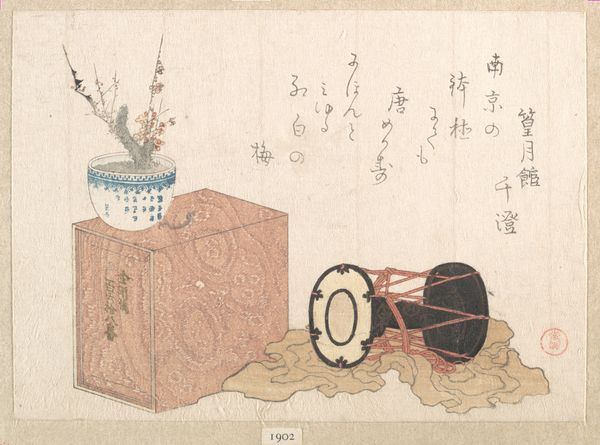 篁月館
千澄
南京の
鉢植
にても
唐めかず
にほんと
みゆる
紅白の
梅
1902